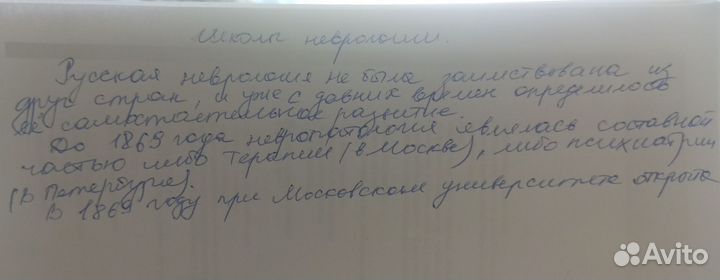 Школы неврологии.
Русская неврология не была заимствована из
друг стран, и уже с давних времен определилось
её самостоятельное развитие.
До 1869 года невропатология являлась составной
частью либо терапии (в Москве), либо психиатрии
(в Петербурге).
В 1869 году при Московском университете открыта
Avito